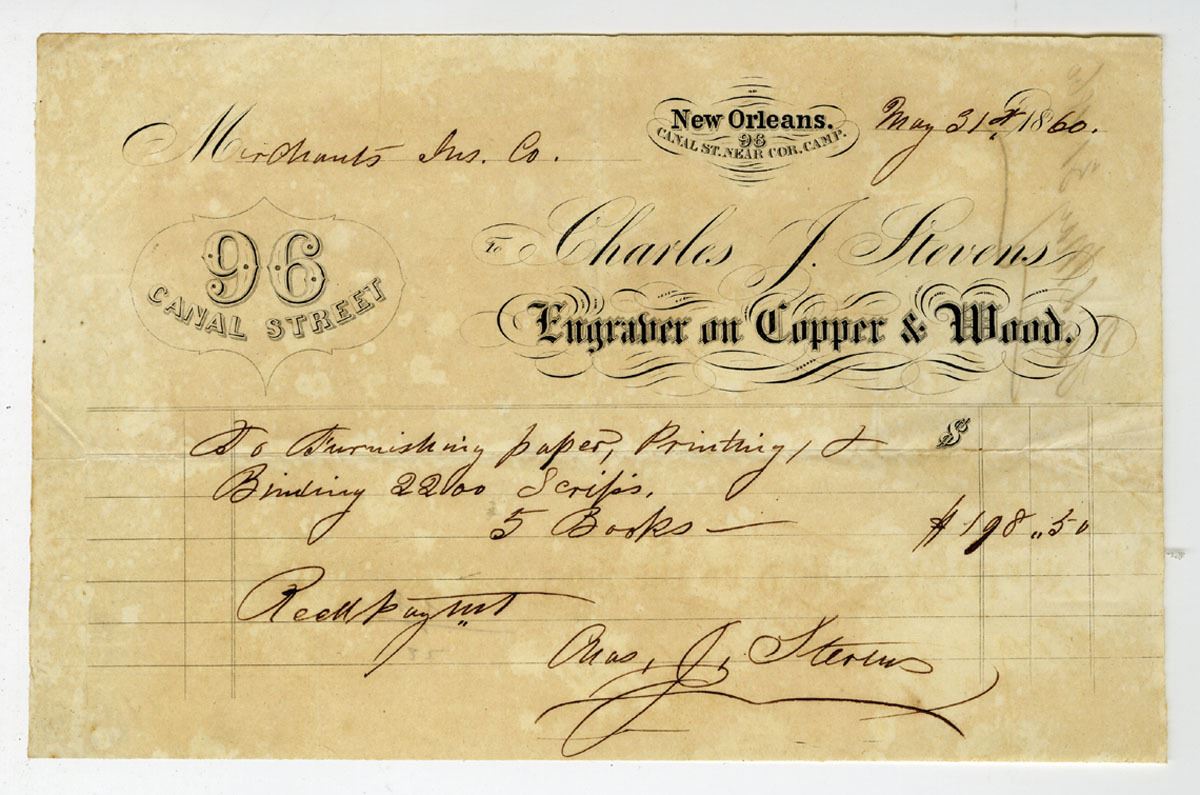 New Orleans. May 31st 1860.
96
CANAL ST. NEAR COR. CAMP.
Merchants Ins. Co.
To Charles J. Stevens
96
CANAL STREET
Engraver on Copper & Wood.
To Furnishing paper, Printing, & $
Binding 2200 Scrips.
5 Books — $198.50
Recd paymt
Chas. J. Stevens